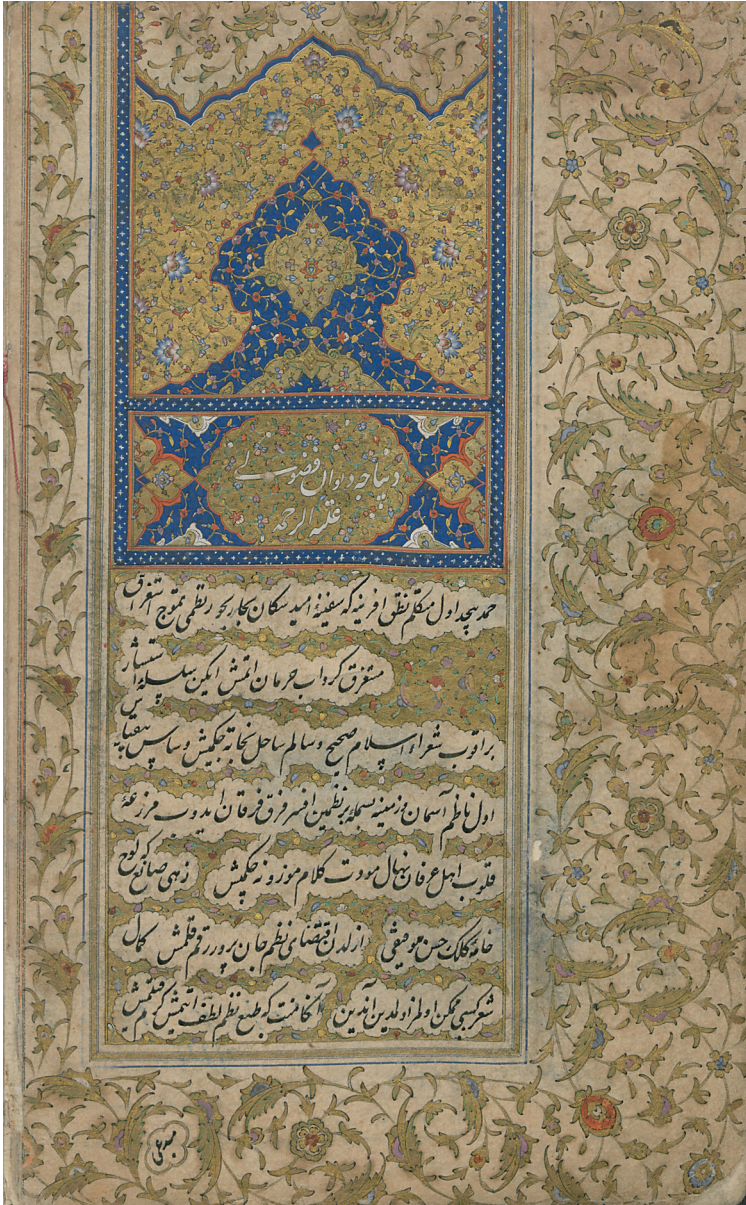 دیباجه دیوان فضولی
علیه الرحمه
حمد بیحد اول متکلم نطق آفرینه که سفینهٔ امید سکان بحار بحور نظمی تموج استغراق
مستغرق کرداب حرمان اتمش ایکن سلسلهٔ
براقوب شعراء اسلام صحیح و سالم ساحل نجاته چکمیش و سپاس بیقیاس
اول ناظم آسمان و زمینه بسمله بر نظمین افسر فرق فرقان ایدوب مزرعهٔ
قلوب اهل عرفانه نهال مودت کلام موزونه چکمیش زهی صانع که لوح
خامهٔ کلک حسن موفیقی ازلدن اقتضای نظم جان پرور رقم قلمش کمال
شعر کسبی ممکن اولمز اولدین آندین آنکا منت که طبع نظم لطف اتمیش کرم قلمیش